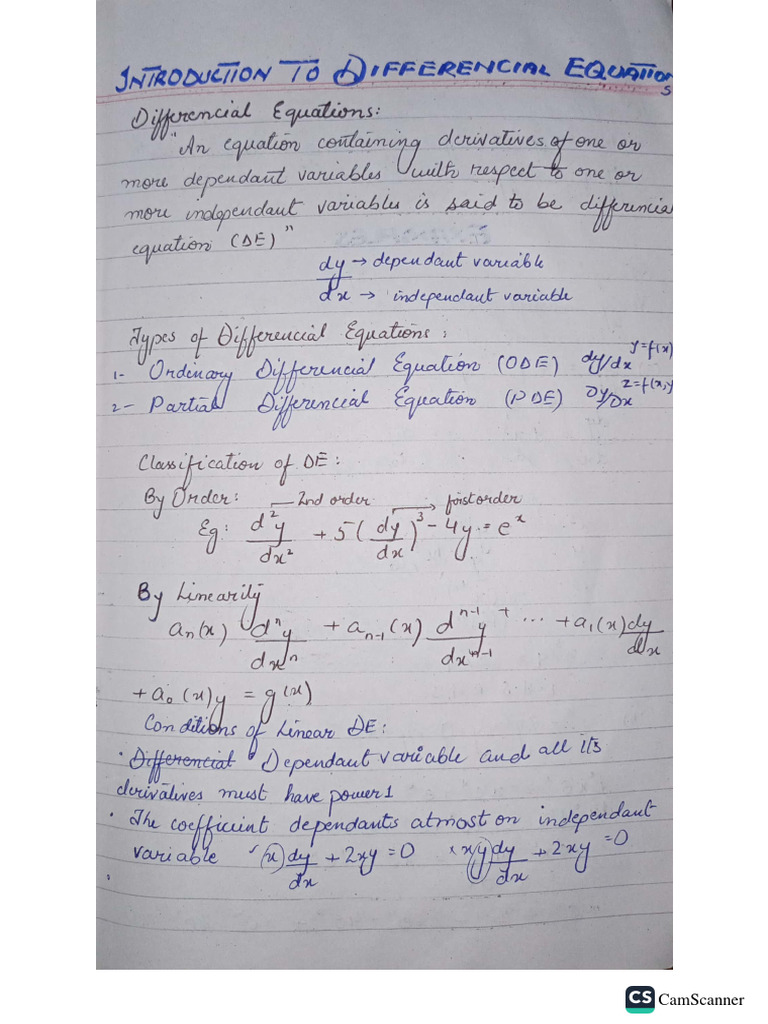 INTRODUCTION TO DIFFERENCIAL EQUATIONS
Differencial Equations:
"An equation containing derivatives of one or
more dependant variables with respect to one or
more independant variables is said to be differencial
equation (DE)"
dy → dependant variable
dx → independant variable
Types of Differencial Equations:
1- Ordinary Differencial Equation (ODE) dy/dx y=f(x)
2- Partial Differencial Equation (PDE) ∂y/∂x z=f(x,y
Classification of DE:
By Order: 2nd order → first order
Eg: d²y/dx² + 5(dy/dx)³ - 4y = eˣ
By Linearity
aₙ(x) dⁿy/dxⁿ + aₙ₋₁(x) dⁿ⁻¹y/dxⁿ⁻¹ + ... + a₁(x) dy/dx
+ a₀(x)y = g(x)
Conditions of Linear DE:
• Differencial Dependant variable and all its
derivatives must have power 1
• The coefficient dependants atmost on independant
variable ✓(x) dy/dx + 2xy = 0 × x(y) dy/dx + 2xy = 0
CS CamScanner